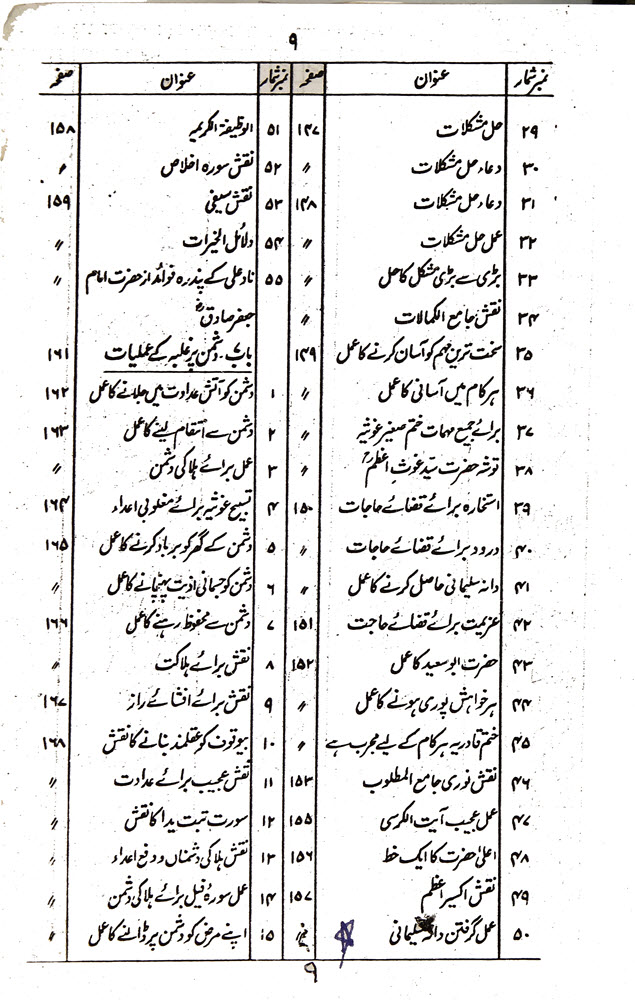 ۹
نمبر شمار عنوان صفحہ
۲۹ حل مشکلات ۱۴۷
۳۰ دعاء حل مشکلات 〃
۳۱ دعاء حل مشکلات ۱۴۸
۳۲ عمل حل مشکلات 〃
۳۳ بڑی سے بڑی مشکل کا حل 〃
۳۴ نقش جامع الکمالات 〃
۳۵ سخت ترین مہم کو آسان کرنے کا عمل ۱۴۹
۳۶ ہر کام میں آسانی کا عمل 〃
۳۷ برائے جمیع مہمات ختم صغیر غوثیہ 〃
۳۸ توشہ حضرت سید غوث اعظمؒ 〃
۳۹ استخارہ برائے قضائے حاجات ۱۵۰
۴۰ درود برائے قضائے حاجات 〃
۴۱ دانہ سلیمانی حاصل کرنے کا عمل 〃
۴۲ عزیمت برائے قضائے حاجت ۱۵۱
۴۳ حضرت ابو سعید کا عمل ۱۵۲
۴۴ ہر خواہش پوری ہونے کا عمل 〃
۴۵ ختم قادریہ ہر کام کے لیے مجرب ہے 〃
۴۶ نقش نوری جامع المطلوب ۱۵۳
۴۷ عمل عجیب آیت الکرسی ۱۵۵
۴۸ اعلیٰ حضرت کا ایک خط ۱۵۶
۴۹ نقش اکسیر اعظم ۱۵۷
۵۰ عمل گرفتن دانہ سلیمانی
نمبر شمار عنوان صفحہ
۵۱ الوظیفۃ الکریمہ ۱۵۸
۵۲ نقش سورہ اخلاص 〃
۵۳ نقش سیفی ۱۵۹
۵۴ دلائل الخیرات 〃
۵۵ ناد علی کے پندرہ فوائد از حضرت امام 〃
جعفر صادقؓ
باب ۷۔ دشمن پر غلبہ کے عملیات ۱۶۱
۱ دشمن کو آتش عداوت میں جلانے کا عمل ۱۶۲
۲ دشمن سے انتقام لینے کا عمل ۱۶۳
۳ عمل برائے ہلاکی دشمن 〃
۴ تسبیح غوثیہ برائے مغلوبی اعداء ۱۶۴
۵ دشمن کے گھر کو برباد کرنے کا عمل ۱۶۵
۶ دشمن کو جسمانی اذیت پہنچانے کا عمل 〃
۷ دشمن سے محفوظ رہنے کا عمل ۱۶۶
۸ نقش برائے ہلاکت 〃
۹ نقش برائے افشائے راز ۱۶۷
۱۰ بیوقوف کو عقلمند بنانے کا نقش ۱۶۸
۱۱ نقش عجیب برائے عداوت 〃
۱۲ سورت تبت یدا کا نقش 〃
۱۳ نقش ہلاکی دشمناں و دفع اعداء 〃
۱۴ عمل سورہ فیل برائے ہلاکی دشمن 〃
۱۵ اپنے مرض کو دشمن پر ڈالنے کا عمل 〃
۹